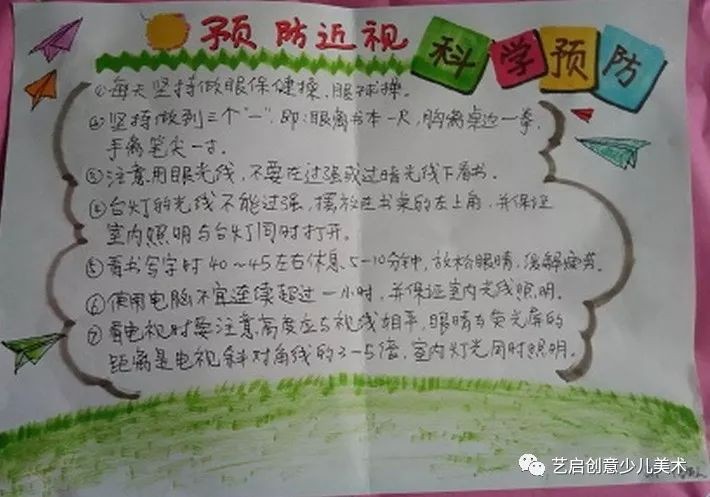 预防近视 科学预防
①每天坚持做眼保健操、眼球操。
②坚持做到三个"一",即:眼离书本一尺,胸离桌边一拳,
手离笔尖一寸。
③注意用眼光线,不要在过强或过暗光线下看书。
④台灯的光线不能过强,摆放在书桌的左上角,并保证
室内照明与台灯同时打开。
⑤看书写字时40~45左右休息5-10分钟,放松眼睛,缓解疲劳。
⑥使用电脑不宜连续超过一小时,并保证室内光线照明。
⑦看电视时要注意高度应与视线相平,眼睛与荧光屏的
距离是电视斜对角线的3-5倍,室内灯光同时照明。
艺启创意少儿美术